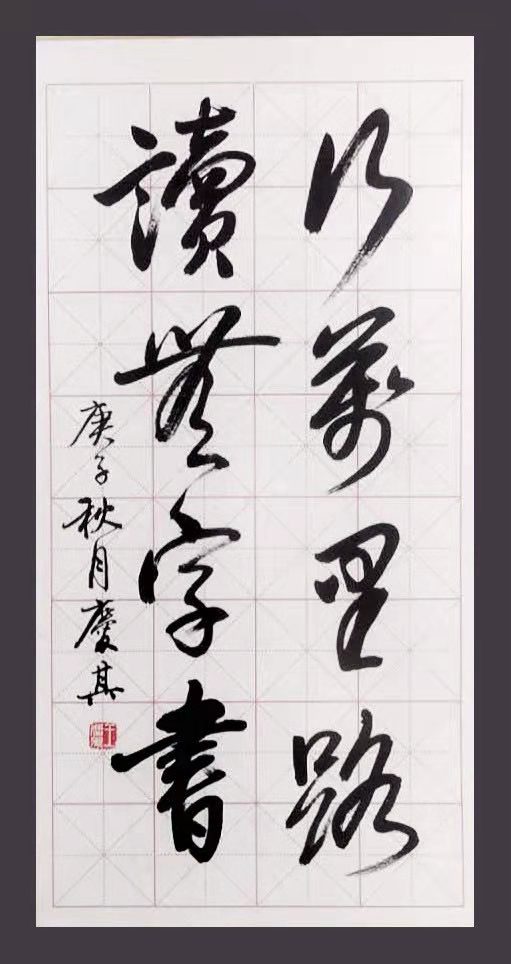 行萬里路
讀無字書
庚子秋月慶其